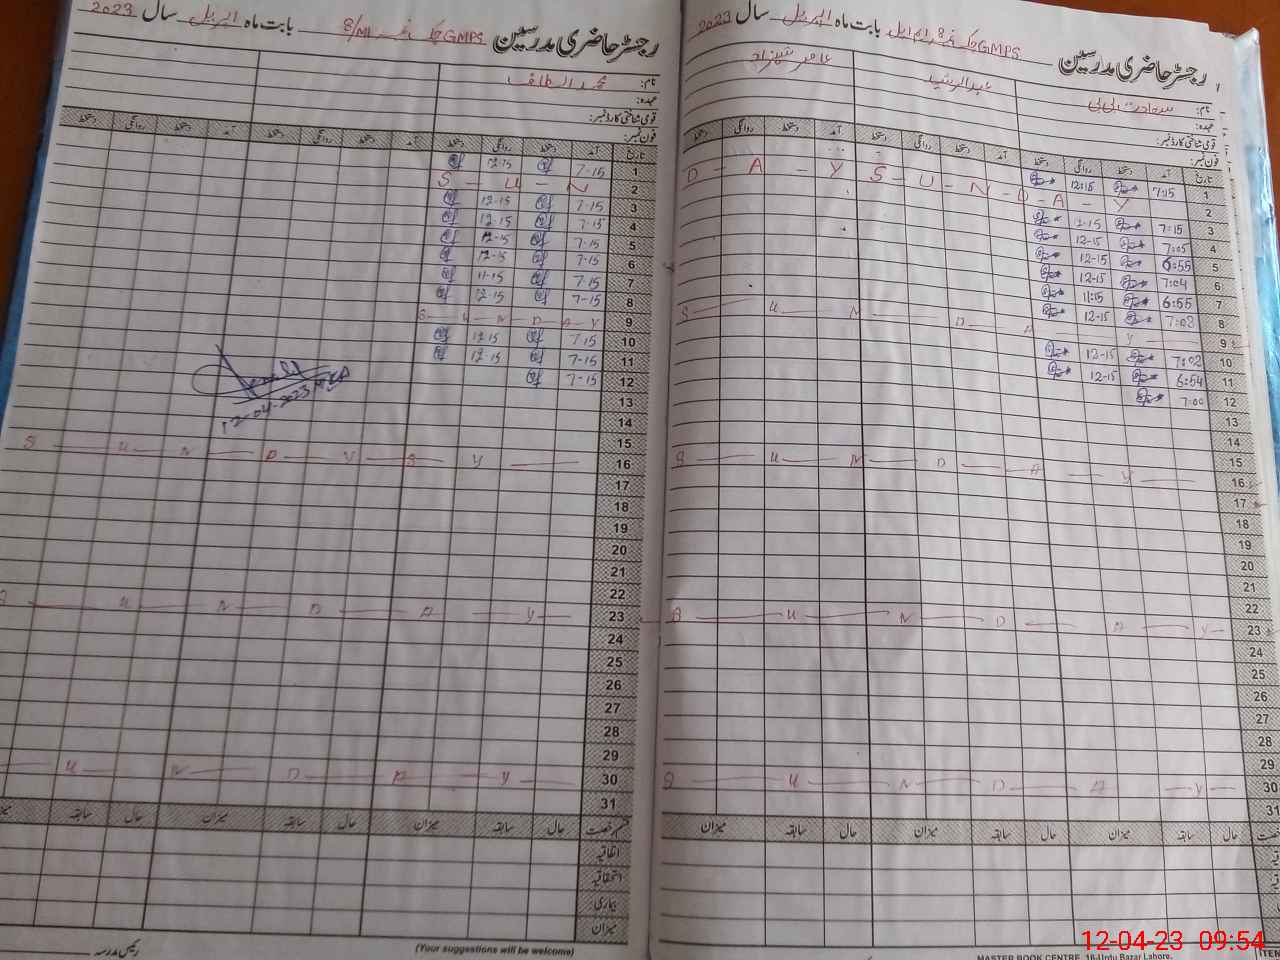 رجسٹر حاضری مدرسین GMPS چک نمبر 8/ML بابت ماہ اپریل سال 2023
نام: محمد الطاف
عہدہ:
قومی شناختی کارڈ نمبر:
فون نمبر:
تاریخ آمد دستخط روانگی دستخط آمد دستخط روانگی دستخط آمد دستخط روانگی دستخط
1 7-15 12-15
2 S - U - N
3 7-15 12-15
4 7-15 12-15
5 7-15 12-15
6 7-15 12-15
7 7-15 11-15
8 7-15 12-15
9 S U N D A Y
10 7-15 12-15
11 7-15 12-15
12 7-15
13
12-04-2023
14
15
16 S U N D Y S Y
17
18
19
20
21
22
23 S U N D A Y
24
25
26
27
28
29
30 U N D A Y
31
قسم رخصت حال سابقہ میزان حال سابقہ میزان حال سابقہ میزان
اتفاقیہ
استحقاقیہ
بیماری
میزان
(Your suggestions will be welcome)
رئیس مدرسہ
رجسٹر حاضری مدرسین GMPS چک نمبر 8 ایم ایل بابت ماہ اپریل سال 2023
نام: عبدالرشید عامر شہزاد
عہدہ:
قومی شناختی کارڈ نمبر:
فون نمبر:
تاریخ آمد دستخط روانگی دستخط آمد دستخط روانگی دستخط آمد دستخط روانگی دستخط
1 7:15 12:15
2 D - A - Y S - U - N - D - A - Y
3 7:15 12-15
4 7:05 12-15
5 6:55 12-15
6 7:04 12-15
7 6:55 11:15
8 7:03 12-15
9 S U N D A Y
10 7:02 12-15
11 6:54 12-15
12 7:00
13
14
15
16 S U N D A Y
17
18
19
20
21
22
23 S U N D A Y
24
25
26
27
28
29
30 S U N D A Y
31
حال سابقہ میزان حال سابقہ میزان حال سابقہ میزان
MASTER BOOK CENTRE, 16-Urdu Bazar Lahore.
ITEM
12-04-23 09:54